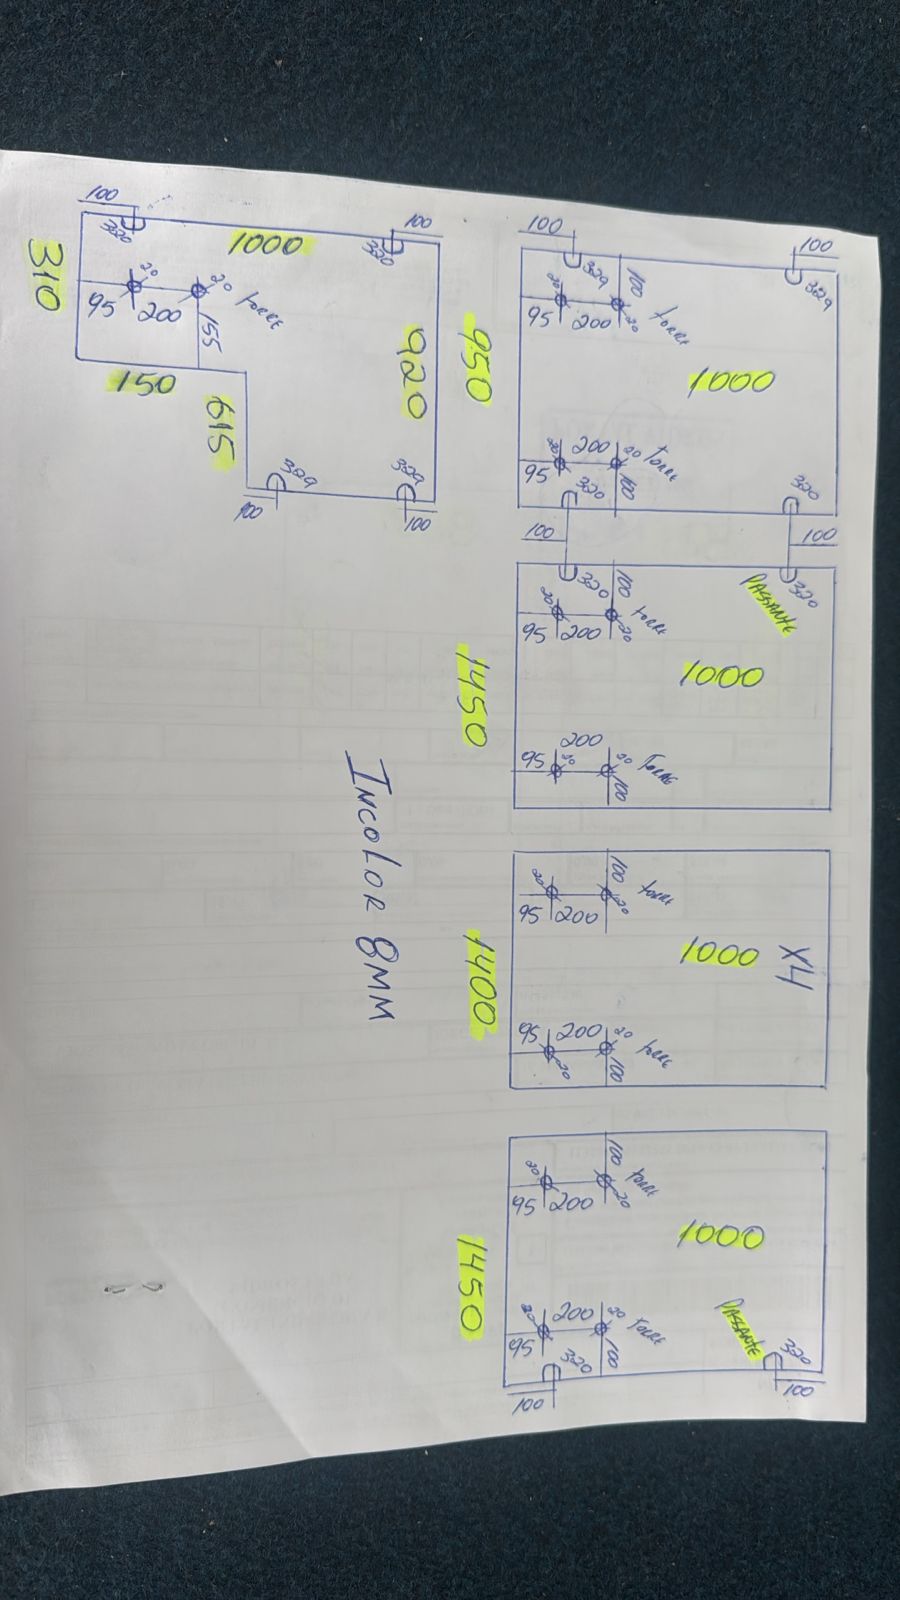 100
320
1000
100
320
310
20
20
TORRE
95
200
155
920
150
615
329
329
100
100
100
329
100
100
329
20
95
200
20
TORRE
950
1000
200
20
TORRE
20
95
100
320
320
100
100
320
100
320
PASSANTE
20
95
200
20
TORRE
1450
1000
200
95
20
20
TORRE
100
INCOLOR 8MM
100
20
95
200
20
TORRE
1400
1000
X4
95
200
20
TORRE
20
100
100
20
95
200
20
TORRE
1450
1000
200
20
TORRE
20
95
100
PASSANTE
320
320
100
100